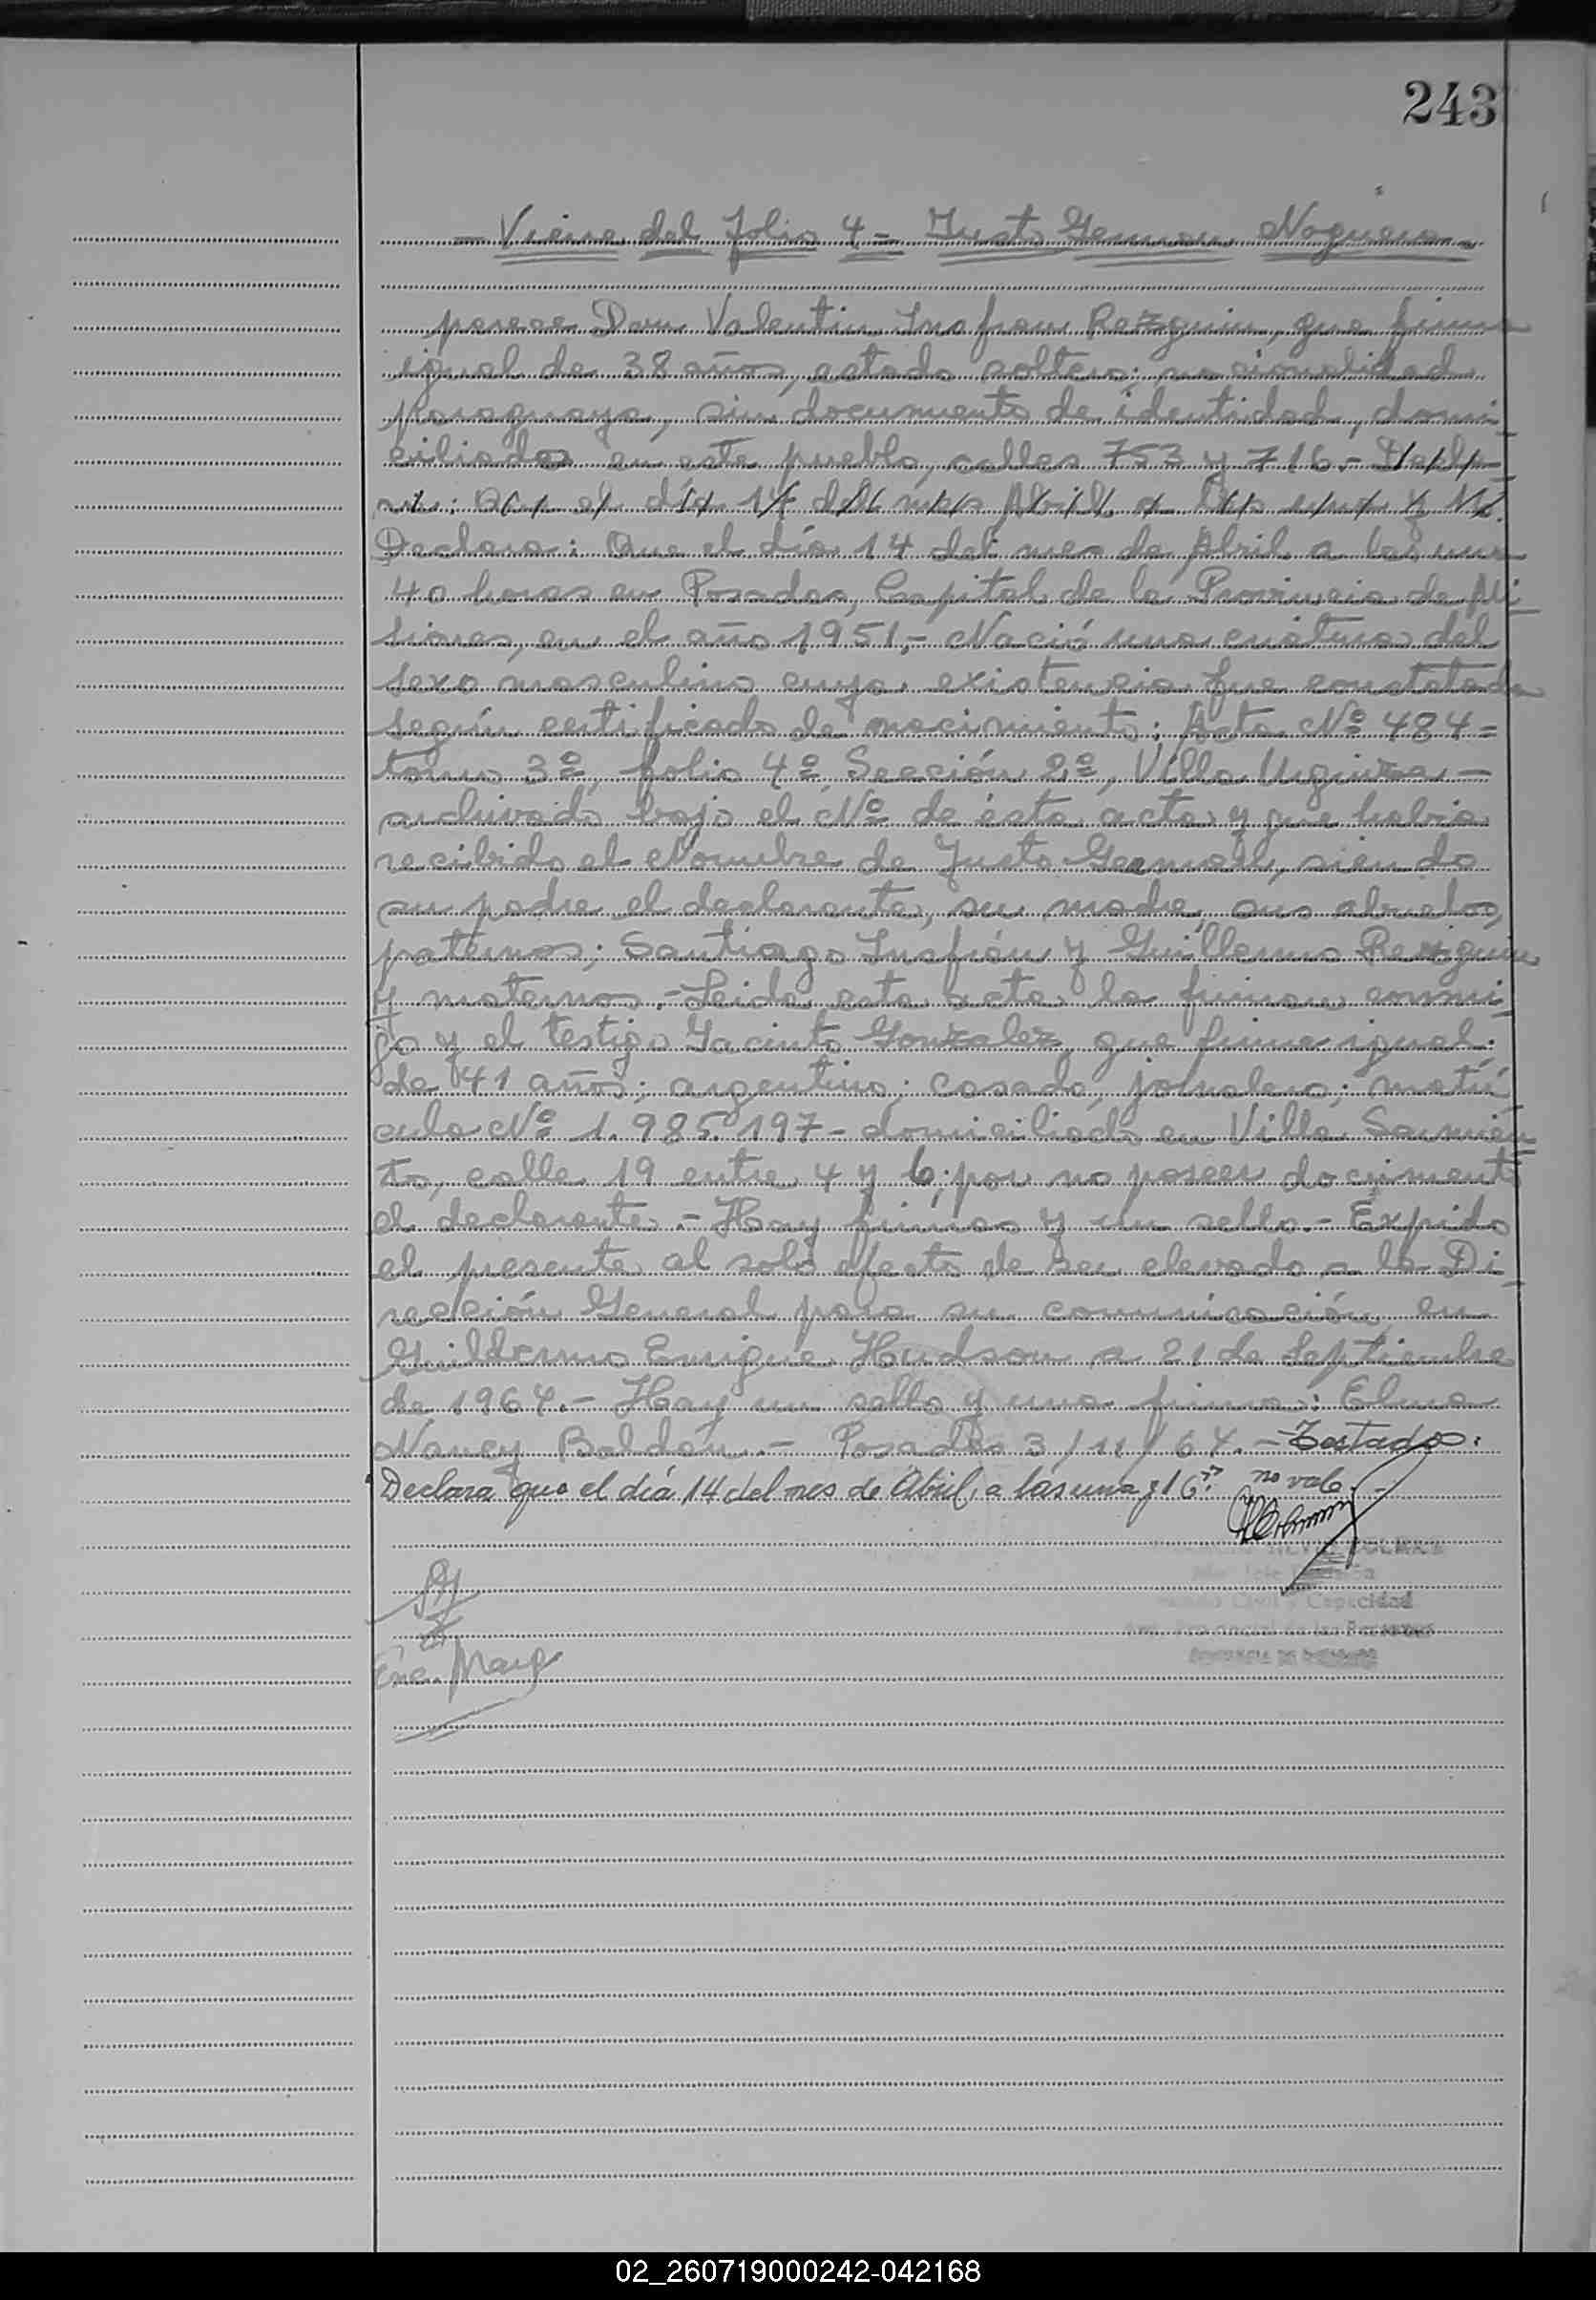 243
- Viene del folio 4 - Justo German Noguera -
parece Don Valentin Insfran Rezquin, que firma
igual de 38 años, estado soltero; nacionalidad
paraguaya, sin documento de identidad, domi-
ciliado en este pueblo, calles 753 y 716.- Decla-
ra: Que el día 14 del mes Abril a las una y 16.
Declara: Que el día 14 del mes de Abril a las una
40 horas en Posadas, Capital de la Provincia de Mi-
siones, en el año 1951.- Nació una criatura del
sexo masculino cuya existencia fue constatada
según certificado de nacimiento: Acta Nº 484=
tomo 3º, folio 4º Sección 2º, Villa Urquiza -
archivado bajo el Nº de ésta acta y que habia
recibido el Nombre de Justo German, siendo
su padre el declarante, su madre, sus abuelos,
paternos; Santiago Insfrán y Guillerma Rezquin
y maternos.- Leida esta acta la firman conmi-
go y el testigo Jacinto Gonzalez, que firma igual.
de 41 años; argentino; casado, jornalero; matrí-
cula Nº 1.985.197- domiciliado en Villa Sarmien-
to, calle 19 entre 4 y 6; por no poseer documento
el declarante.- Hay firmas y un sello.- Expido
el presente al solo efecto de ser elevado a la Di-
rección General para su comunicación en
Guillermo Enrique Hudson a 21 de Septiembre
de 1964.- Hay un sello y una firma: Elma
Nancy Baldán.- Posadas 3/11/64.- Testado:
Declara que el día 14 del mes de Abril, a las una y 16: no vale.-
Capacidad
de las Personas
02_260719000242-042168